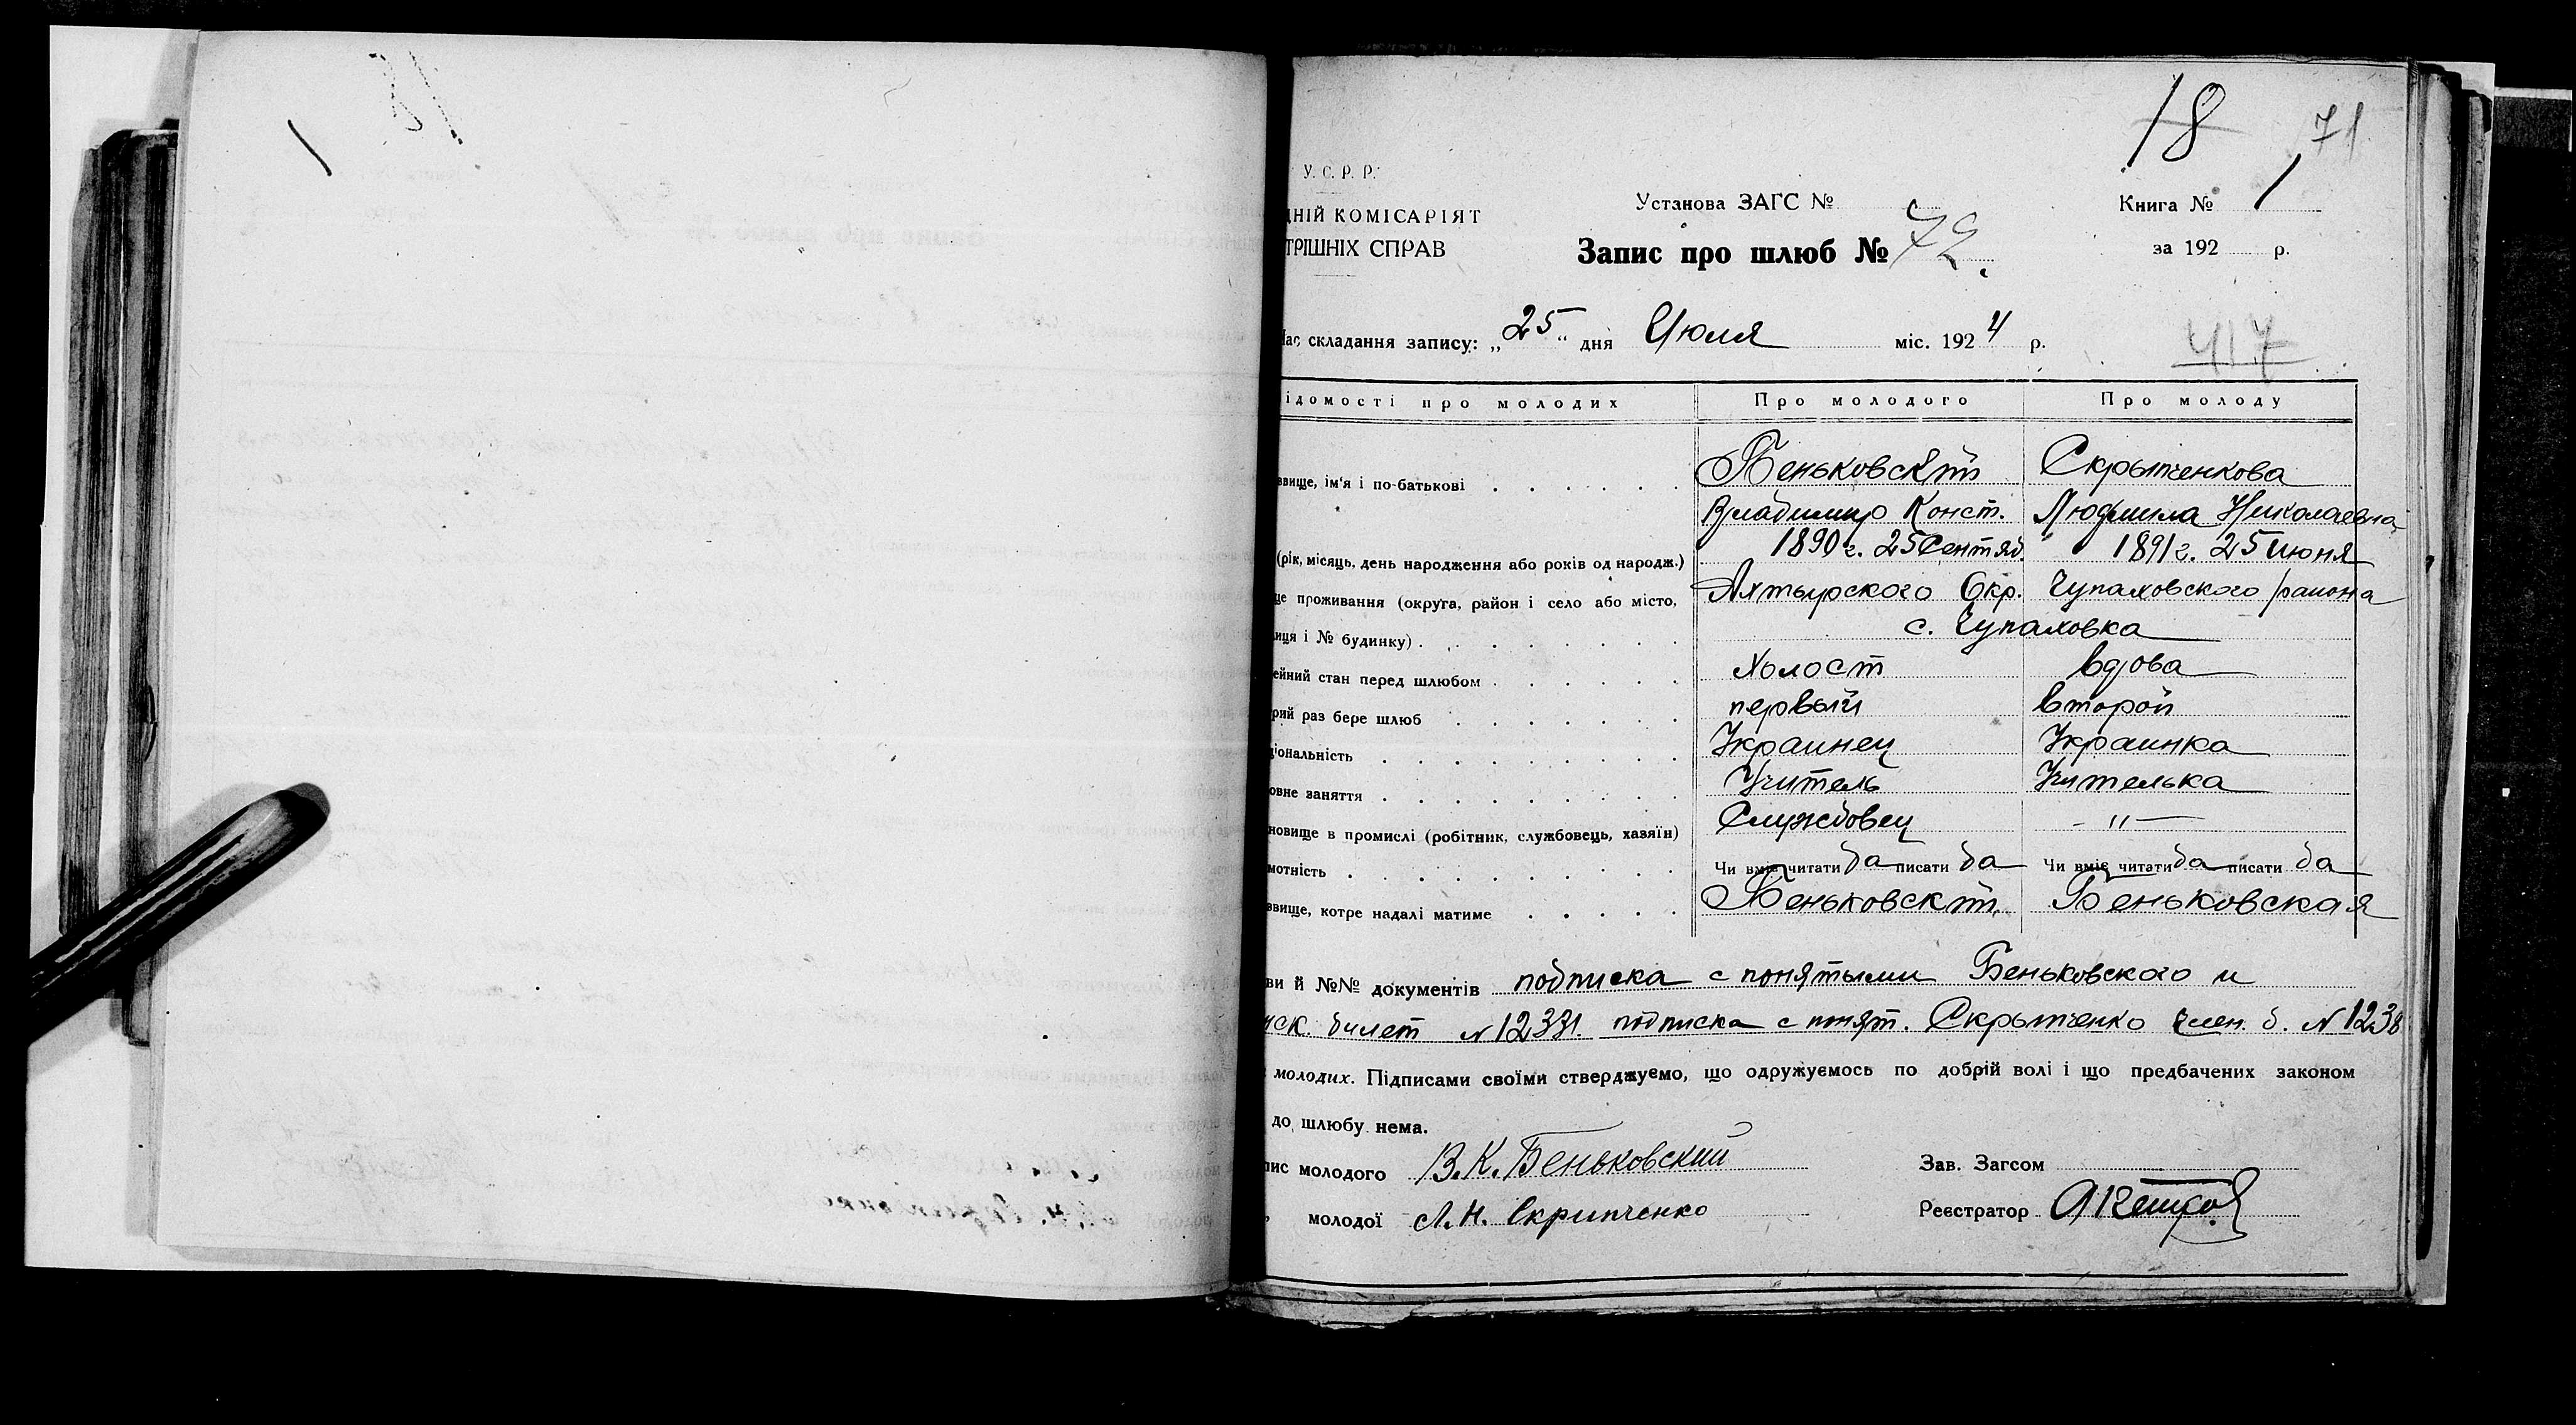 18 71
У. С. Р. Р.
ДНІЙ КОМІСАРІЯТ
ТРІШНІХ СПРАВ
Установа ЗАГС №
Книга № 1
Запис про шлюб № 72.
за 192 р.
Час складання запису: „25“ дня Июля міс. 1924 р.
417
ідомості про молодих Про молодого Про молоду
Беньковскій Скрыпченкова
звище, ім'я і по-батькові
Владимир Конст. Людмила Николаевна
1890 г. 25 Сентяб. 1891 г. 25 июня
(рік, місяць, день народження або років од народж.)
це проживання (округа, район і село або місто, Ахтырского Окр. Чупаховского района
иця і № будинку) с. Чупаховка
ейний стан перед шлюбом Холост вдова
рий раз бере шлюб первый второй
ціональність Украинец Украинка
овне заняття Учитель Учителька
новище в промислі (робітник, службовець, хазяїн) Службовец - " -
мотність Чи вміє читати да писати да Чи вміє читати да писати да
звище, котре надалі матиме Беньковский. Беньковская
ви й №№ документів подписка с понятыми Беньковского и
иск. билет № 1237. подписка с понят. Скрыпченко член. б. № 1238
молодих. Підписами своїми стверджуємо, що одружуємось по добрій волі і що предбачених законом
до шлюбу нема.
пис молодого В. К. Беньковский Зав. Загсом
молодої Л. Н. Скрипченко Реєстратор